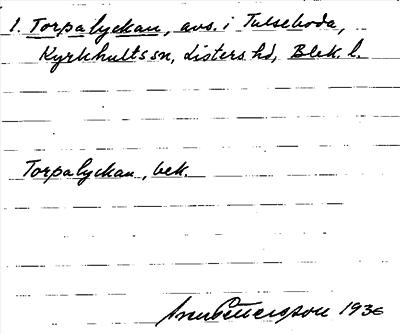 1. Torpalyckan, avs. i Tulseboda,
Kyrkhults sn, Listers hd, Blek. l.
Torpalyckan, bek.
1936